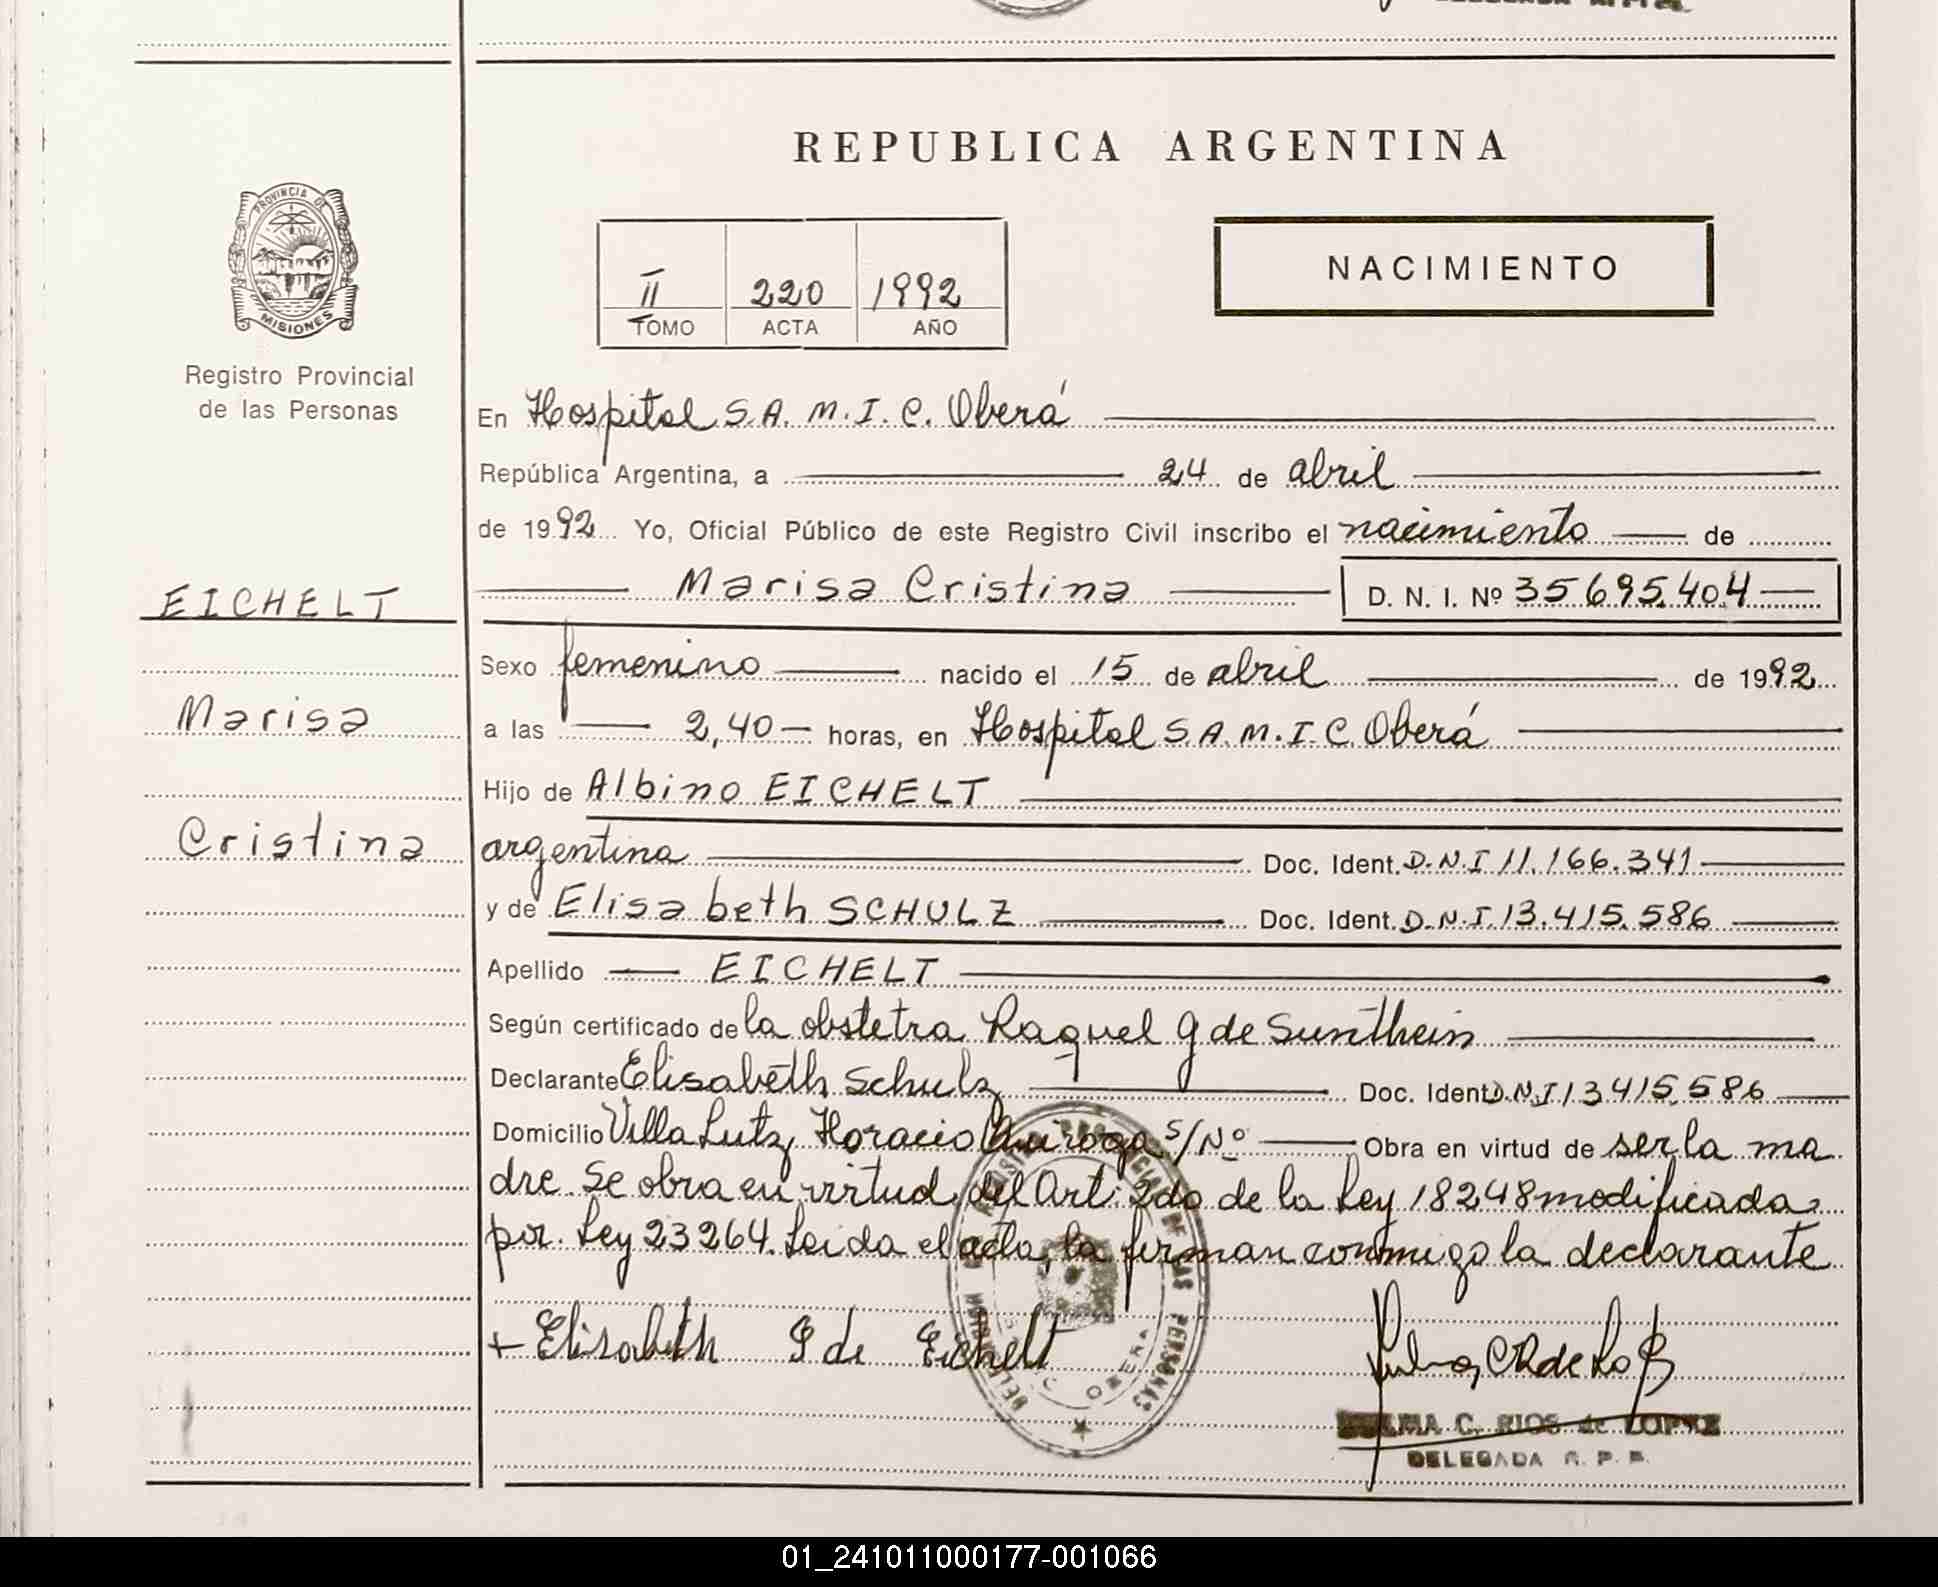 REPUBLICA ARGENTINA
PROVINCIA DE
MISIONES
Registro Provincial
de las Personas
II 220 1992
TOMO ACTA AÑO
NACIMIENTO
En Hospital S.A.M.I.C. Oberá
República Argentina, a 24 de abril
de 1992 Yo, Oficial Público de este Registro Civil inscribo el nacimiento de
EICHELT
Marisa
Cristina
Marisa Cristina D. N. I. Nº 35695.404
Sexo femenino nacido el 15 de abril de 1992
a las 2,40 horas, en Hospital S.A.M.I.C. Oberá
Hijo de Albino EICHELT
argentina Doc. Ident. D.N.I 11.166.341
y de Elisabeth SCHULZ Doc. Ident. D.N.I.13.415.586
Apellido EICHELT
Según certificado de la obstetra Raquel G de Sunthein
Declarante Elisabeth Schulz Doc. Ident. D.N.I 13415.586
Domicilio Villa Lutz, Horacio Quiroga S/Nº Obra en virtud de ser la ma
dre. Se obra en virtud del Art. 2do de la Ley 18248 modificada
por Ley 23264. Leida el acta, la firman conmigo la declarante
+ Elisabeth S de Eichelt
C. RIOS de LOPEZ
DELEGADA R. P. P.
OBERA
01_241011000177-001066